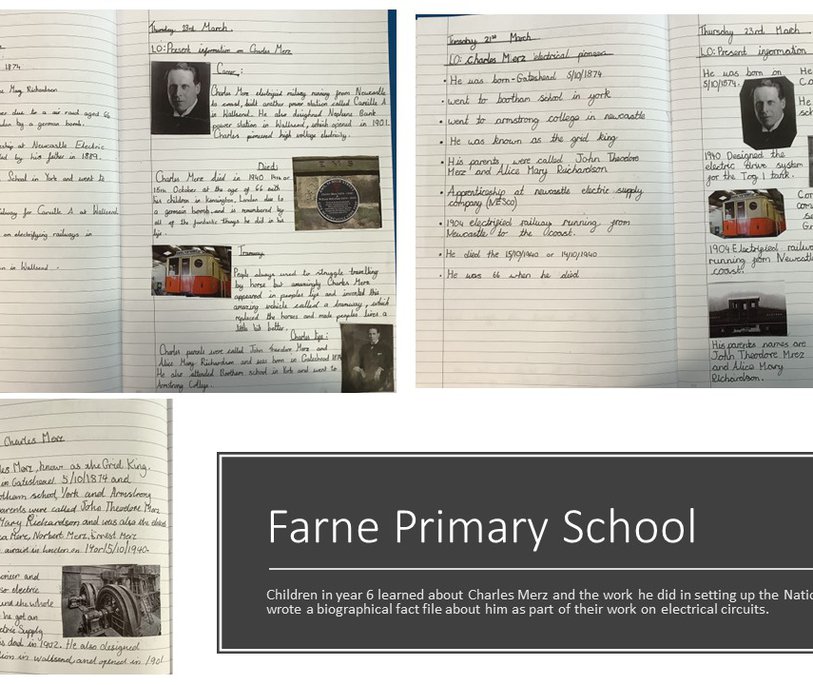 1874
Mary Richardson
due to a air raid aged 66
by a german bomb.
at Newcastle Electric
by his father in 1889.
School in York and went to
Railway for Carville A at Wallsend
on electrifying railways in
in Wallsend.
Thursday 23rd March.
LO: Present information on Charles Merz
Career:
Charles Merz electrified railway running from Newcastle
to coast, built another power station called Carville A
in Wallsend. He also designed Neptune Bank
power station in Wallsend, which opened in 1901.
Charles pioneered high voltage electricity.
Died:
Charles Merz died in 1940 14th or
15th October at the age of 66 with
his children in Kensington, London due to
a german bomb, and is remembered by
all of the fantastic things he did in his
life.
Tramway
People always used to struggle travelling
by horse but amazingly Charles Merz
appeared in peoples life and invented this
amazing vehicle called a tramway, which
replaced the horses and made peoples lives a
little bit better.
Charles life:
Charles parents were called John Theodore Merz and
Alice Mary Richardson and was born in Gateshead 1874
He also attended Bootham school in York and went to
Armstrong College.
Tuesday 21st March
LO: Charles Merz electrical pioneer
• He was born - Gateshead 5/10/1874
• went to bootham school in york
• went to armstrong college in newcastle
• He was known as the grid king
• His parents were called John Theodore
Merz and Alice Mary Richardson
• Apprenticeship at newcastle electric supply
company (NESCo)
• 1904 electrified railway running from
Newcastle to the coast.
• He died the 15/10/1940 or 14/10/1940
• He was 66 when he died
Thursday 23rd March
LO: Present information
He was born on
5/10/1874.
1940 Designed the
electric drive system
for the Tog 1 tank.
1904 Electrified railway
running from Newcastle
coast.
His parents names are
John Theodore Mrez
and Alice Mary
Richardson.
Charles Merz
Merz, know as the Grid King,
in Gateshead 5/10/1874 and
school, York and Armstrong
parents were called John Theodore Merz
Mary Richardson and was also the
Norbert Merz, Ernest Merz
airaid in london on 14 or 15/10/1940.
and
electric
the whole
he got an
Supply
dad in 1902. He also designed
in wallsend, and opened in 1901
Farne Primary School
Children in year 6 learned about Charles Merz and the work he did in setting up the
wrote a biographical fact file about him as part of their work on electrical circuits.